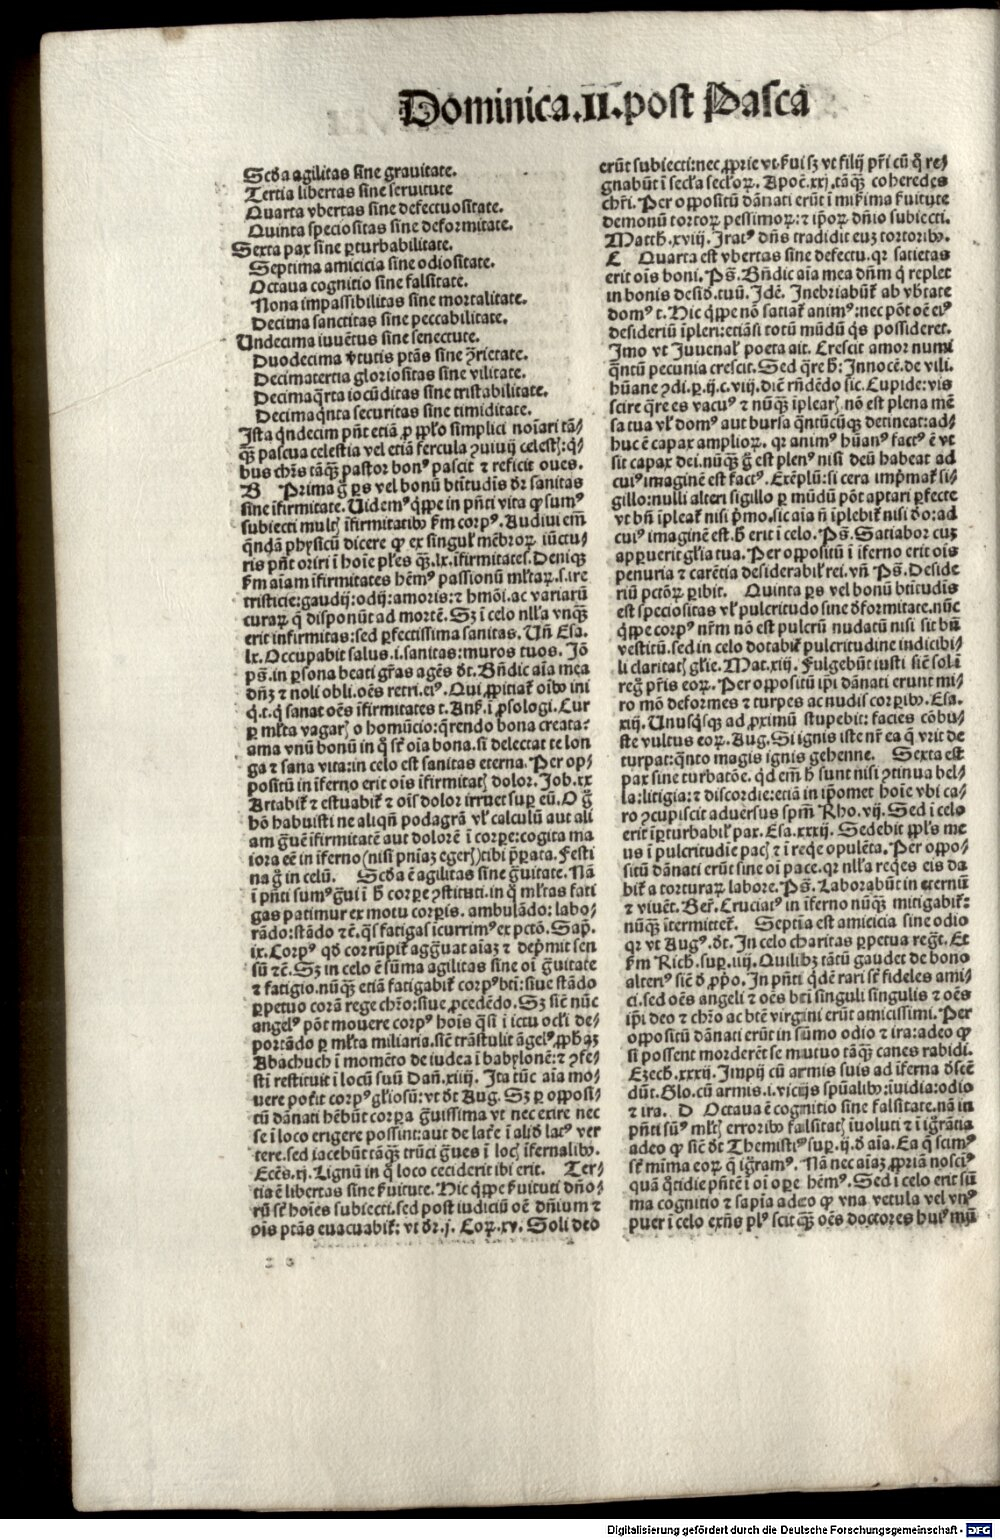 Dominica.II.post Pasca
Scďa agilitas sine grauitate.
Tertia libertas sine seruitute
Quarta vbertas sine defectuositate.
Quinta speciositas sine deformitate.
Sexta pax sine ꝑturbabilitate.
Septima amicicia sine odiositate.
Octaua cognitio sine falsitate.
Nona impassibilitas sine mortalitate.
Decima sanctitas sine peccabilitate.
Undecima iuuētus sine senectute.
Duodecima v̓tutis ptās sine ↄ̄rietate.
Decimatertia gloriositas sine vilitate.
Decimaq̄rta iocūditas sine tristabilitate.
Decimaq̄nta securitas sine timiditate.
Ista q̄ndecim pn̄t etiā ꝓ ppl̓o simplici noīari tā⸗
qꝫ̄ pascua celestia vel etiā fercula ↄuiuij celestꝭ:q̄⸗
bus chr̄s tāqꝫ̄ pastor bonꝰ pascit ⁊ reficit oues.
B Prima g̊ ꝑs vel bonū btītudīs dr̄ sanitas
sine īfirmitate. Uidemꝰ q̄ppe in pn̄ti vita ꝙ sumꝰ
subiecti multꝭ īfirmitatibꝰ ẜm corpꝰ. Audiui em̄
q̄ndā physicū dicere ꝙ ex singul̓ mēbroꝝ iūctu⸗
ris pn̄t oriri ī hoīe pl̓es qꝫ̄.lx.īfirmitates. Deniqꝫ
ẜm aīam īfirmitates hēmꝰ passionū ml̓taꝝ.s.ire
tristicie:gaudij:odij:amoris:⁊ hmōi.ac variarū
curaꝝ q̄ disponūt ad mortē. Sꝫ ī celo nll̓a vnqꝫ̄
erit infirmitas:sed ꝑfectissima sanitas. Un̄ Esa.
lx. Occupabit salus.i.sanitas:muros tuos. Iō
ps̄.in ꝑsona beati gr̄as agēs dt̄. Bn̄dic aīa mea
dn̄ꝫ ⁊ noli obli.oēs retri.eiꝰ. Qui ꝓpitiat̓ oībꝰ ini
q̇.t.q̇ sanat oēs īfirmitates t. Ans̓.ī ꝓsologi. Cur
ꝑ ml̓ta vagarꝭ o homūcio:q̄rendo bona creata:
ama vnū bonū in q̊ st̓ oīa bona.si delectat te lon
ga ⁊ sana vita:in celo est sanitas eterna. Per op⸗
positū in īferno erit oīs īfirmitatꝭ dolor. Job.xx
Artabit̓ ⁊ estuabit̓ ⁊ oīs dolor irruet suꝑ eū. O g̊
hō habuisti ne aliqn̄ podagrā vl̓ calculū aut ali
am g̊uē īfirmitatē aut dolorē ī corꝑe:cogita ma
iora eē in īferno (nisi pnīaꝫ egerꝭ) tibi p̄ꝑata. Festi
na g̊ in celū. Scďa ē agilitas sine g̊uitate. Nā
ī pn̄ti sumꝰ g̊ui ī ħ corꝑe ↄstituti.in q̊ ml̓tas fati
gas patimur ex motu corꝑis. ambulādo: labo⸗
rādo:stādo ⁊c̄.q̄s fatigas īcurrimꝰ ex pctō. Sap̄.
ix. Corpꝰ qď corrūpit̓ agg̊uat aīaꝫ ⁊ dep̄mit sen
sū ⁊c̄. Sꝫ in celo ē sūma agilitas sine oī g̊uitate
⁊ fatigio.nūqꝫ̄ etiā fatigabit̓ corpꝰ bti̇:siue stādo
ꝑpetuo corā rege chr̄o:siue ꝓcedēdo. Sꝫ sic̄ nūc
angelꝰ pōt mouere corpꝰ hoīs q̄si ī ictu ocl̓i de⸗
portādo ꝑ ml̓ta miliaria.sic̄ trāstulit āgelꝰ ꝓph̓aꝫ
Abachuch ī momēto de iudea ī babylonē:⁊ ↄfe⸗
stī restituit ī locū suū Dan̄.xiiij. Ita tūc aīa mo⸗
uere potīt corpꝰ gl̓iosū:vt dt̄ Aug. Sꝫ ꝑ opposi⸗
tū dānati hēbūt corꝑa g̊uissima vt nec exire nec
se ī loco erigere possint:aut de lat̓e ī aliď latꝰ ver
tere.sed iacebūt tāqꝫ̄ trūci g̊ues ī locꝭ īfernalibꝰ.
Eccs̄.xj. Lignū in q̊ loco ceciderit ibi erit. Ter⸗
tia ē libertas sine ẜuitute. Hic q̄ppe ẜuituti dn̄o⸗
rū st̓ hoīes subiecti.sed post iudiciū oē dn̄ium ⁊
oīs ptās euacuabit̓: vt dr̄.j. Coꝝ.xv. Soli deo
erūt subiecti:nec ꝓprie vt ẜui sꝫ vt filij pr̄i cū q̊ re⸗
gnabūt ī secl̓a secl̓oꝝ. Apoc̄.xxj.tāqꝫ̄ coheredes
chr̄i. Per oppositū dānati erūt ī miẜima ẜuitute
demonū tortoꝝ pessimoꝝ:⁊ ip̄oꝝ dn̄io subiecti.
Matth.xviij. Iratꝰ dn̄s tradidit euꝫ tortoribꝰ.
C Quarta est vbertas sine defectu.qꝛ satietas
erit oīs boni. Ps̄. Bn̄dic aīa mea dn̄m q̇ replet
in bonis desiď.tuū. Idē. Inebriabūt̓ ab vb̓tate
domꝰ t. Hic q̄ppe nō satiat̓ animꝰ:nec pōt oē eiꝰ
desideriū īpleri:etiāsi totū mūdū q̇s possideret.
Imo vt Juuenal̓ poeta ait. Crescit amor numi
q̄ntū pecunia crescit. Sed q̄re ħ: Innocē.de vili.
hūane ↄdi.ꝑ.ij.c.viij.dic̄ rn̄dēdo sic. Cupide: vis
scire q̄re es vacuꝰ ⁊ nūqꝫ̄ īplearꝭ. nō est plena mē
sa tua vl̓ domꝰ aut bursa q̄ntūcūqꝫ̄ detineat:ad⸗
huc ē capax amplioꝝ. qꝛ animꝰ hūanꝰ factꝰ ē vt
sit capax dei.nūqꝫ̄ g̊ est plenꝰ nisi deū habeat ad
cuiꝰ imaginē est factꝰ. Exēplū:si cera imp̄mat̓ si⸗
gillo:nulli alteri sigillo ꝑ mūdū pōt aptari ꝑfecte
vt bn̄ īpleat̓ nisi p̓mo.sic aīa n̄ īplebit̓ nisi ďo:ad
cuiꝰ imaginē est. ħ erit ī celo. Ps̄. Satiabor cuꝫ
apꝑuerit gl̓ia tua. Per oppositū ī īferno erit oīs
penuria ⁊ carētia desiderabil̓ rei. vn̄ Ps̄. Deside
riū pctōꝝ ꝑibit. Quinta ꝑs vel bonū btītudīs
est speciositas vl̓ pulcritudo sine ďformitate.nūc
q̄ppe corpꝰ nr̄m nō est pulcrū nudatū nisi sit bn̄
vestitū.sed in celo dotabit̓ pulcritudine indicibi⸗
li claritatꝭ gl̓ie. Mat.xiij. Fulgebūt iusti sic̄ sol ī
reg̊ pr̄is eoꝝ. Per oppositū ip̄i dānati erunt mi⸗
ro mō deformes ⁊ turpes ac nudis corꝑibꝰ. Esa.
xiij. Unusq̇sqꝫ ad ꝓximū stupebit: facies cōbu⸗
ste vultus eoꝝ. Aug. Si ignis iste nr̄ ea q̄ vrit de
turpat:q̄nto magis ignis gehenne. Sexta est
pax sine turbatōe. qď em̄ ħ sunt nisi ↄtinua bel⸗
la:litigia:⁊ discordie:etiā in ip̄omet hoīe vbi ca⸗
ro ↄcupiscit aduersus spm̄ Rho.vij. Sed ī celo
erit īꝑturbabil̓ pax. Esa.xxxij. Sedebit ppl̓s me
us ī pulcritudīe pacꝭ ⁊ ī req̇e opulēta. Per oppo⸗
sitū dānati erūt sine oī pace.qꝛ nll̓a req̇es eis da
bit̓ a torturaꝝ labore. Ps̄. Laborabūt in eternū
⁊ viuēt. Ber̄. Cruciatꝰ in īferno nūqꝫ̄ mitigabit̓:
nūqꝫ̄ ītermittet̓. Septīa est amicicia sine odio
qꝛ vt Augꝰ.dt̄. In celo charitas ꝑpetua reg̊t. Et
ẜm Rich.suꝑ.iiij. Quilibꝫ tātū gaudet de bono
alteriꝰ sic̄ ď ꝓp̓o. In pn̄ti q̇dē rari st̓ fideles ami⸗
ci.sed oēs angeli ⁊ oēs bti̇ singuli singulis ⁊ oēs
ip̄i deo ⁊ chr̄o ac btē virgini erūt amicissimi. Per
oppositū dānati erūt in sūmo odio ⁊ ira:adeo ꝙ
si possent morderēt se mutuo tāqꝫ̄ canes rabidi.
Ezech.xxxij. Impij cū armis suis ad īferna ďscē
dūt. Glo.cū armis.i.vicijs spūalibꝰ:īuidia:odio
⁊ ira. D Octaua ē cognitio sine falsitate.nā in
pn̄ti sūꝰ ml̓tꝭ erroribꝰ falsitatꝭ īuoluti ⁊ ī ig̊rātia
adeo ꝙ sic̄ dt̄ Themistiꝰ suꝑ.ij.ď aīa. Ea q̄ scimꝰ
st̓ mīma eoꝝ q̄ ig̊ramꝰ. Nā nec aīaꝫ ꝓpriā nosciꝰ
quā q̊tidie pn̄tē ī oī oꝑe hēmꝰ. Sed ī celo erit sū
ma cognitio ⁊ sapīa adeo ꝙ vna vetula vel vnꝰ
puer ī celo exn̄s plꝰ scit qꝫ̄ oēs doctores huiꝰ mū
Digitalisierung gefördert durch die Deutsche Forschungsgemeinschaft - DFG